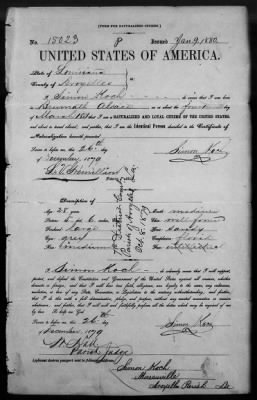 [FORM FOR NATURALIZED CITIZEN.]
No. 15023 8 Issued Jan 9, 1880
UNITED STATES OF AMERICA.
State of Louisiana
County of Avoyelles
I, Simon Kock do swear that I was born
in Alsace on the fourth day
of March that I am a NATURALIZED AND LOYAL CITIZEN OF THE UNITED STATES,
and about to travel abroad; and further, that I am the Identical Person described in the Certificate of
Naturalization herewith presented.
Sworn to before me, this 26th
day of December 1879
Description of
Age: 28 years
Stature: 5 feet 6 inches
Forehead: large
Eyes: grey
Nose: medium
Mouth: medium
Chin:
Hair:
Complexion: florid
Face:
District Court
Parish of Avoyelles La.
Oct. 8. 1879
I, Simon Kock do solemnly swear that I will support,
protect, and defend the Constitution and Government of the United States against all enemies, whether
domestic or foreign; and that I will bear true faith, allegiance, and loyalty to the same, any ordinance,
resolution, or law of any State, Convention, or Legislature to the contrary notwithstanding; and further,
that I do this with a full determination, pledge, and purpose, without any mental reservation or evasion
whatsoever; and further, that I will well and faithfully perform all the duties which may be required of me
by law. So help me God.
Sworn to before me, this 26th
day of December 1879
Parish Judge
Applicant desires passport sent to following address:
Simon Kock
Avoyelles Parish La